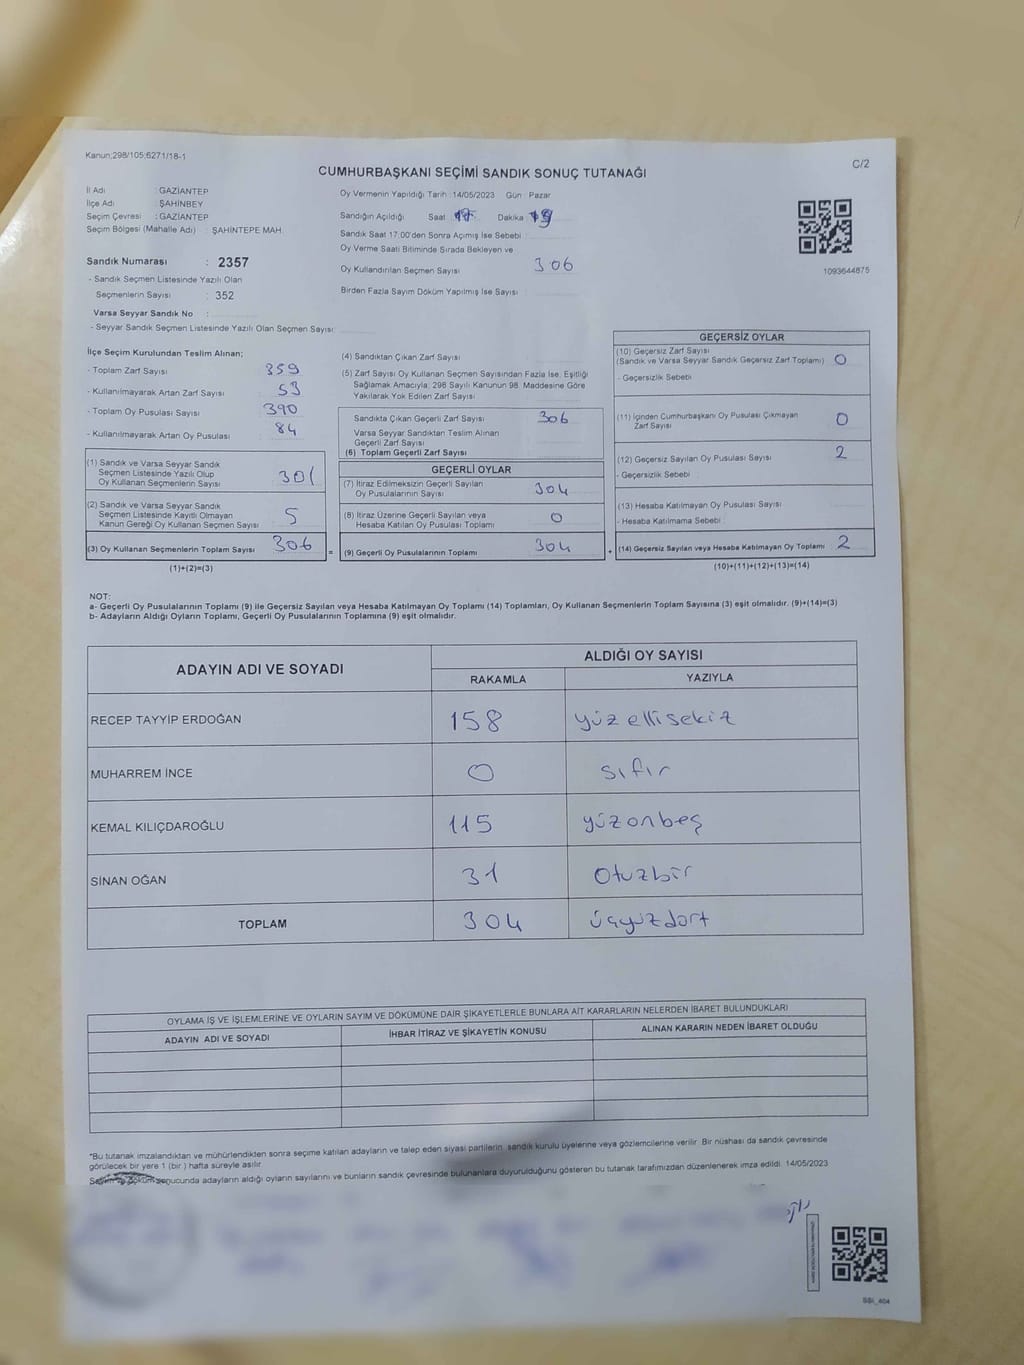 Kanun;298/105;6271/18-1
C/2
CUMHURBAŞKANI SEÇİMİ SANDIK SONUÇ TUTANAĞI
İl Adı : GAZİANTEP
İlçe Adı : ŞAHİNBEY
Seçim Çevresi : GAZİANTEP
Seçim Bölgesi (Mahalle Adı) : ŞAHİNTEPE MAH.
Sandık Numarası : 2357
- Sandık Seçmen Listesinde Yazılı Olan
Seçmenlerin Sayısı : 352
Varsa Seyyar Sandık No :
- Seyyar Sandık Seçmen Listesinde Yazılı Olan Seçmen Sayısı:
Oy Vermenin Yapıldığı Tarih :14/05/2023 Gün : Pazar
Sandığın Açıldığı Saat Dakika
Sandık Saat 17:00'den Sonra Açımış İse Sebebi
Oy Verme Saati Bitiminde Sırada Bekleyen ve
Oy Kullandırılan Seçmen Sayısı 306
Birden Fazla Sayım Döküm Yapılmış İse Sayısı :
1093644875
İlçe Seçim Kurulundan Teslim Alınan;
- Toplam Zarf Sayısı 359
- Kullanılmayarak Artan Zarf Sayısı 53
- Toplam Oy Pusulası Sayısı 390
- Kullanılmayarak Artan Oy Pusulası : 84
(1) Sandık ve Varsa Seyyar Sandık
Seçmen Listesinde Yazılı Olup
Oy Kullanan Seçmenlerin Sayısı 301
(2) Sandık ve Varsa Seyyar Sandık
Seçmen Listesinde Kayıtlı Olmayan
Kanun Gereği Oy Kullanan Seçmen Sayısı 5
(3) Oy Kullanan Seçmenlerin Toplam Sayısı 306
(1)+(2)=(3)
=
(4) Sandıktan Çıkan Zarf Sayısı
(5) Zarf Sayısı Oy Kullanan Seçmen Sayısından Fazla İse, Eşitliği
Sağlamak Amacıyla, 298 Sayılı Kanunun 98. Maddesine Göre
Yakılarak Yok Edilen Zarf Sayısı
Sandıkta Çıkan Geçerli Zarf Sayısı 306
Varsa Seyyar Sandıktan Teslim Alınan
Geçerli Zarf Sayısı
(6) Toplam Geçerli Zarf Sayısı
GEÇERLİ OYLAR
(7) İtiraz Edilmeksizin Geçerli Sayılan
Oy Pusulalarının Sayısı 304
(8) İtiraz Üzerine Geçerli Sayılan veya
Hesaba Katılan Oy Pusulası Toplamı 0
(9) Geçerli Oy Pusulalarının Toplamı 304
+
GEÇERSİZ OYLAR
(10) Geçersiz Zarf Sayısı
(Sandık ve Varsa Seyyar Sandık Geçersiz Zarf Toplamı) 0
- Geçersizlik Sebebi
(11) İçinden Cumhurbaşkanı Oy Pusulası Çıkmayan
Zarf Sayısı 0
(12) Geçersiz Sayılan Oy Pusulası Sayısı 2
- Geçersizlik Sebebi
(13) Hesaba Katılmayan Oy Pusulası Sayısı
- Hesaba Katılmama Sebebi
(14) Geçersiz Sayılan veya Hesaba Katılmayan Oy Toplamı 2
(10)+(11)+(12)+(13)=(14)
NOT:
a- Geçerli Oy Pusulalarının Toplamı (9) ile Geçersiz Sayılan veya Hesaba Katılmayan Oy Toplamı (14) Toplamları, Oy Kullanan Seçmenlerin Toplam Sayısına (3) eşit olmalıdır. (9)+(14)=(3)
b- Adayların Aldığı Oyların Toplamı, Geçerli Oy Pusulalarının Toplamına (9) eşit olmalıdır.
ADAYIN ADI VE SOYADI ALDIĞI OY SAYISI
RAKAMLA YAZIYLA
RECEP TAYYİP ERDOĞAN 158 yüz ellisekiz
MUHARREM İNCE 0 sıfır
KEMAL KILIÇDAROĞLU 115 yüzonbeş
SİNAN OĞAN 31 Otuzbir
TOPLAM 304 üçyüzdört
OYLAMA İŞ VE İŞLEMLERİNE VE OYLARIN SAYIM VE DÖKÜMÜNE DAİR ŞİKAYETLERLE BUNLARA AİT KARARLARIN NELERDEN İBARET BULUNDUKLARI
ADAYIN ADI VE SOYADI İHBAR İTİRAZ VE ŞİKAYETİN KONUSU ALINAN KARARIN NEDEN İBARET OLDUĞU
*Bu tutanak imzalandıktan ve mühürlendikten sonra seçime katılan adayların ve talep eden siyasi partilerin sandık kurulu üyelerine veya gözlemcilerine verilir. Bir nüshası da sandık çevresinde
görülecek bir yere 1 (bir ) hafta süreyle asılır.
Sayım ve döküm sonucunda adayların aldığı oyların sayılarını ve bunların sandık çevresinde bulunanlara duyurulduğunu gösteren bu tutanak tarafımızdan düzenlenerek imza edildi. 14/05/2023
SSI_404